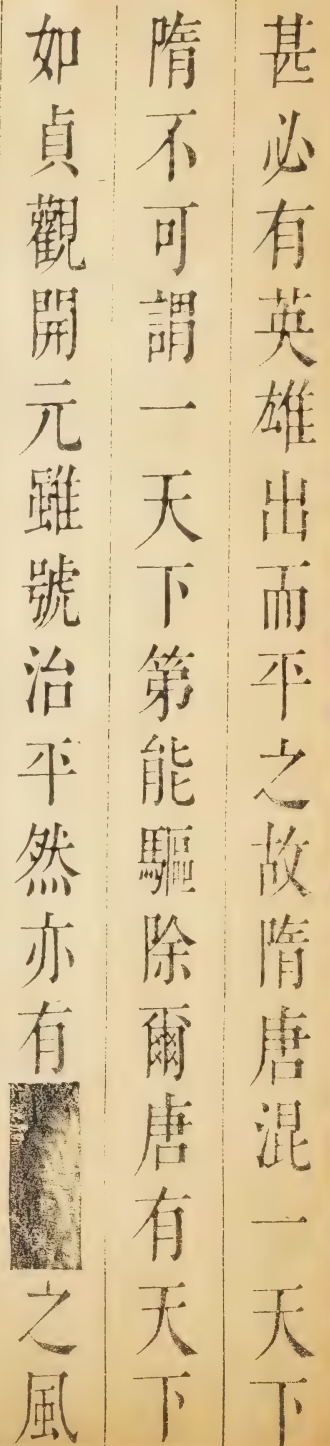 甚必有英雄出而平之故隋唐混一天下
隋不可謂一天下第能驅除爾唐有天下
如貞觀開元雖號治平然亦有之風